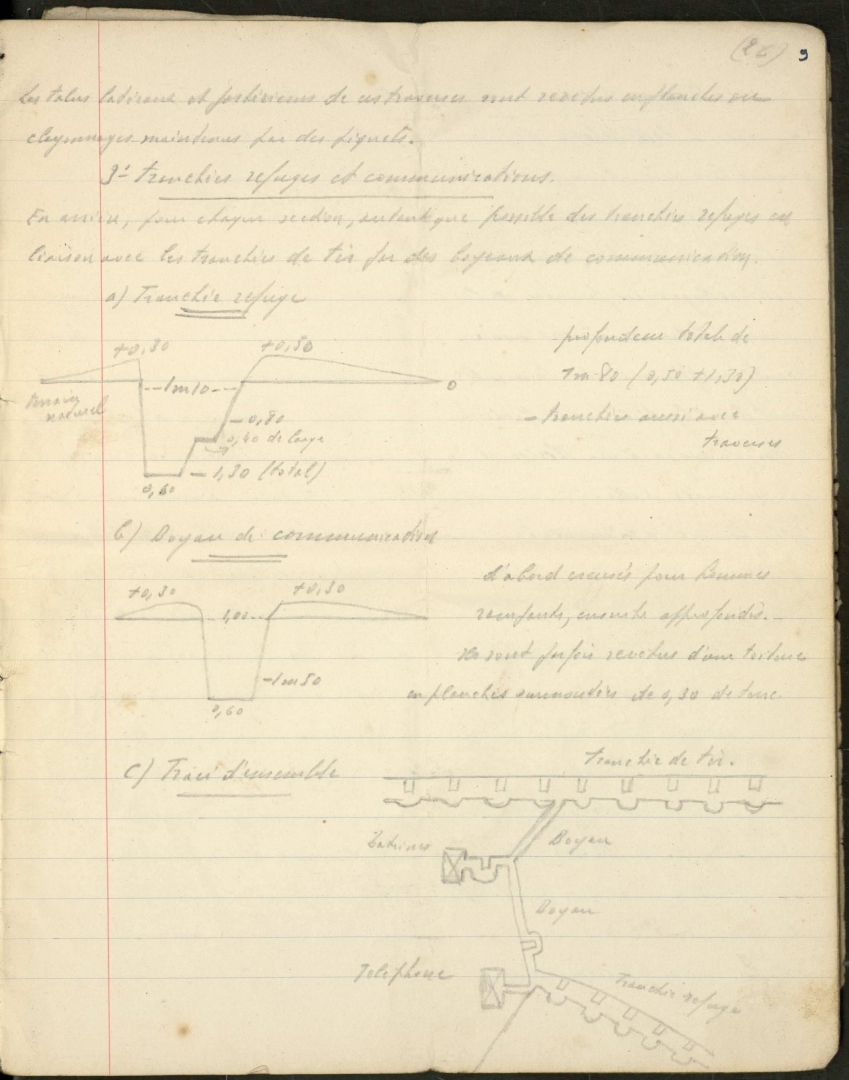 (26) 9
Les talus latéraux et postérieurs de ces traverses sont revêtus en planches ou
clayonnages maintenus par des piquets.
3° Tranchées refuges et communications.
En arrière, pour chaque section, autant que possible des tranchées refuges en
liaison avec les tranchées de tir par des boyaux de communication.
a) Tranchée refuge
+0,30 +0,50
1m10
0
Terrain
naturel
-0,80
0,40 de large
-1,30 (total)
0,60
profondeur totale de
1m80 (0,50 + 1,30)
- tranchées aussi avec
traverses
b) Boyau de communication
+0,30 +0,30
1,00
-1m50
0,60
d'abord creusés pour hommes
rampants, ensuite approfondis.
Ils sont parfois revêtus d'une toiture
en planches surmontées de 0,30 de terre.
C) Tracé d'ensemble
Tranchée de tir.
Latrines
Boyau
Boyau
Téléphone
Tranchée refuge